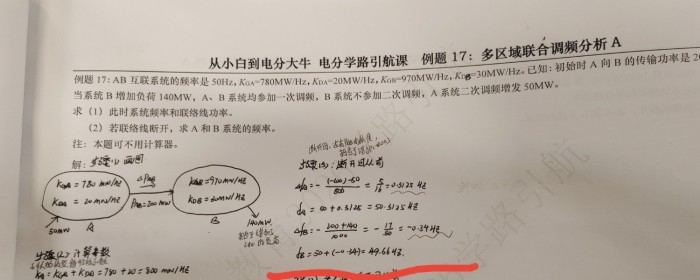 从小白到电分大牛 电分学路引航课 例题 17：多区域联合调频分析 A
例题 17：AB 互联系统的频率是 50Hz，K_GA=780MW/Hz，K_DA=20MW/Hz，K_GB=970MW/Hz，K_DB=30MW/Hz。已知：初始时 A 向 B 的传输功率是 20
当系统 B 增加负荷 140MW，A、B 系统均参加一次调频，B 系统不参加二次调频，A 系统二次调频增发 50MW。
求（1）此时系统频率和联络线功率。
（2）若联络线断开，求 A 和 B 系统的频率。
注：本题可不用计算器。
解：步骤(1) 画图
K_GA = 780 MW/HZ
K_DA = 20 MW/HZ
50MW
A
ΔP_AB
P_AB=200MW
K_GB=970MW/HZ
B
140MW
步骤(2) 计算参数
K_A = K_GA + K_DA = 780 + 20 = 800 MW/HZ
断开以后
= 5/16 = 0.3125 HZ
f_A = 50 + 0.3125 = 50.3125 HZ
Δf_B = - (200+140)/1000 = - 17/50 = -0.34 HZ
f_B = 50+(-0.34)= 49.66 HZ.